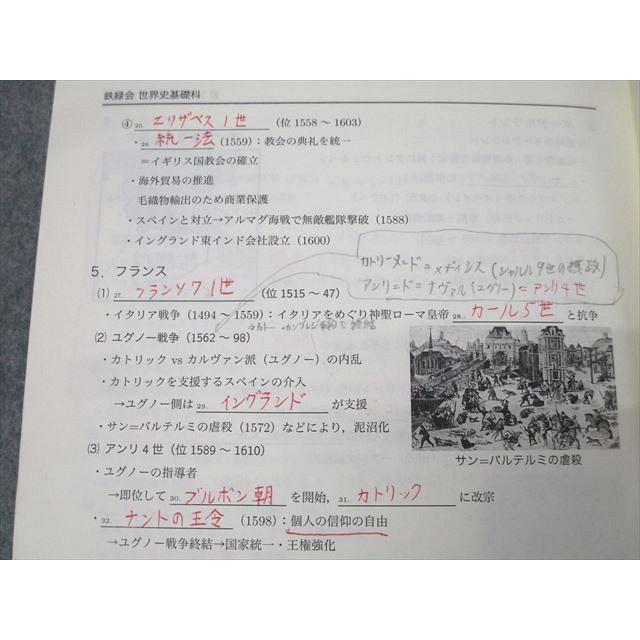 鉄緑会 世界史基礎科
④ 25. エリザベス1世 (位 1558〜1603)
・26. 統一法 (1559):教会の典礼を統一
＝イギリス国教会の確立
・海外貿易の推進
毛織物輸出のため商業保護
・スペインと対立→アルマダ海戦で無敵艦隊撃破 (1588)
・イングランド東インド会社設立 (1600)
カトリーヌ＝ド＝メディシス (シャルル9世の摂政)
アンリ＝ド＝ナヴァル(ユグノー) = アンリ4世
5. フランス
(1) 27. フランソワ1世 (位 1515〜47)
・イタリア戦争 (1494〜1559):イタリアをめぐり神聖ローマ皇帝 28. カール5世 と抗争
→カトー＝カンブレジ条約で終結
(2) ユグノー戦争 (1562〜98)
・カトリック vs カルヴァン派 (ユグノー) の内乱
・カトリックを支援するスペインの介入
→ユグノー側は 29. イングランド が支援
・サン＝バルテルミの虐殺 (1572) などにより，泥沼化
サン＝バルテルミの虐殺
(3) アンリ4世 (位 1589〜1610)
・ユグノーの指導者
→即位して 30. ブルボン朝 を開始，31. カトリック に改宗
・32. ナントの王令 (1598):個人の信仰の自由
→ユグノー戦争終結→国家統一・王権強化